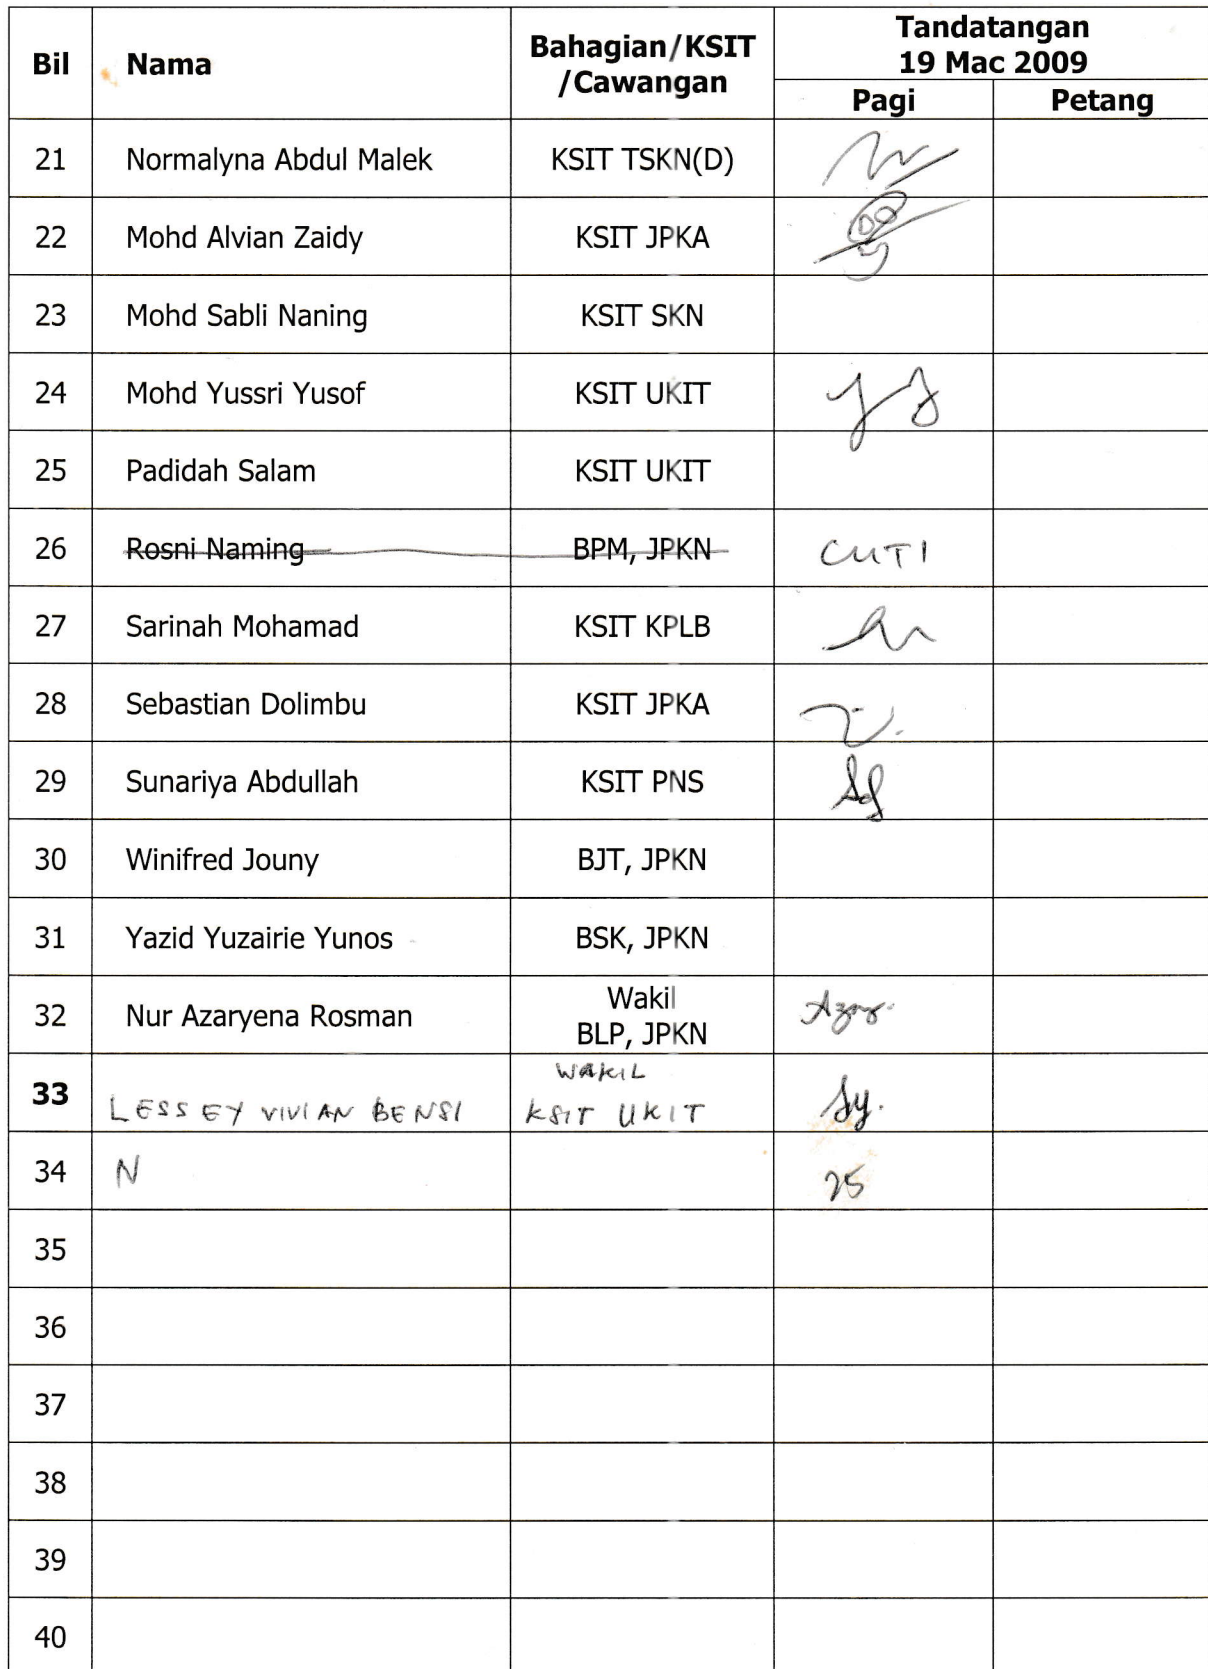 Bil Nama Bahagian/KSIT /Cawangan Tandatangan 19 Mac 2009
Pagi Petang
21 Normalyna Abdul Malek KSIT TSKN(D)
22 Mohd Alvian Zaidy KSIT JPKA
23 Mohd Sabli Naning KSIT SKN
24 Mohd Yussri Yusof KSIT UKIT
25 Padidah Salam KSIT UKIT
26 Rosni Naming BPM, JPKN CUTI
27 Sarinah Mohamad KSIT KPLB
28 Sebastian Dolimbu KSIT JPKA
29 Sunariya Abdullah KSIT PNS
30 Winifred Jouny BJT, JPKN
31 Yazid Yuzairie Yunos BSK, JPKN
32 Nur Azaryena Rosman Wakil BLP, JPKN
33 LESSEY VIVIAN BENSI WAKIL KSIT UKIT
34 N 25
35
36
37
38
39
40